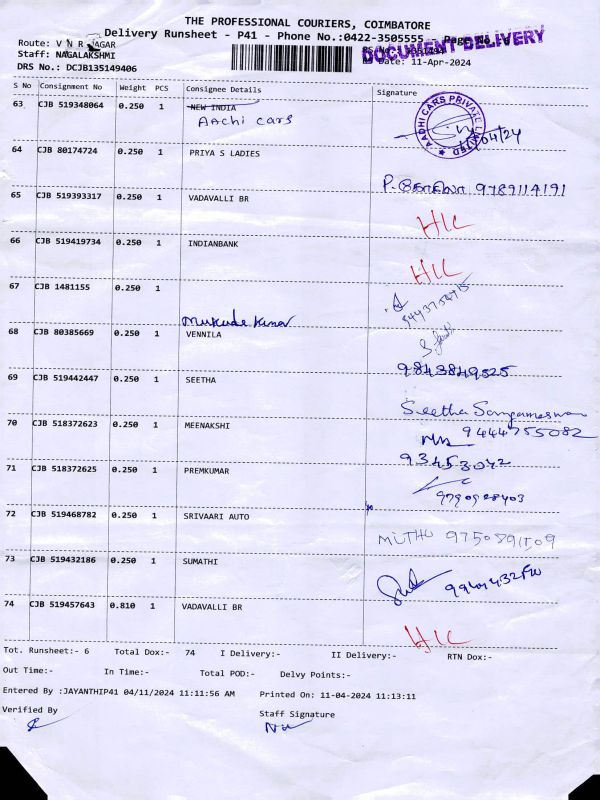 THE PROFESSIONAL COURIERS, COIMBATORE
Delivery Runsheet - P41 - Phone No.:0422-3505555 - Page No
DOCUMENT DELIVERY
Route: V N R NAGAR
Staff: NAGALAKSHMI
Date: 11-Apr-2024
DRS No.: DCJB135149406
S No Consignment No Weight PCS Consignee Details Signature
63 CJB 519348064 0.250 1 NEW INDIA
Aachi cars
AADHI CARS PRIVATE LIMITED
/04/24
64 CJB 80174724 0.250 1 PRIYA S LADIES
9789114191
65 CJB 519393317 0.250 1 VADAVALLI BR
HIL
66 CJB 519419734 0.250 1 INDIANBANK
HIL
67 CJB 1481155 0.250 1
Mukunde Kumar
68 CJB 80385669 0.250 1 VENNILA
9843849525
69 CJB 519442447 0.250 1 SEETHA
Seetha Sangameswaran
9444755082
70 CJB 518372623 0.250 1 MEENAKSHI
93453042
71 CJB 518372625 0.250 1 PREMKUMAR
9790928403
72 CJB 519468782 0.250 1 SRIVAARI AUTO
MUTHU 9750891509
73 CJB 519432186 0.250 1 SUMATHI
74 CJB 519457643 0.810 1 VADAVALLI BR
HIL
Tot. Runsheet:- 6 Total Dox:- 74 I Delivery:- II Delivery:- RTN Dox:-
Out Time:- In Time:- Total POD:- Delvy Points:-
Entered By :JAYANTHIP41 04/11/2024 11:11:56 AM Printed On: 11-04-2024 11:13:11
Verified By Staff Signature